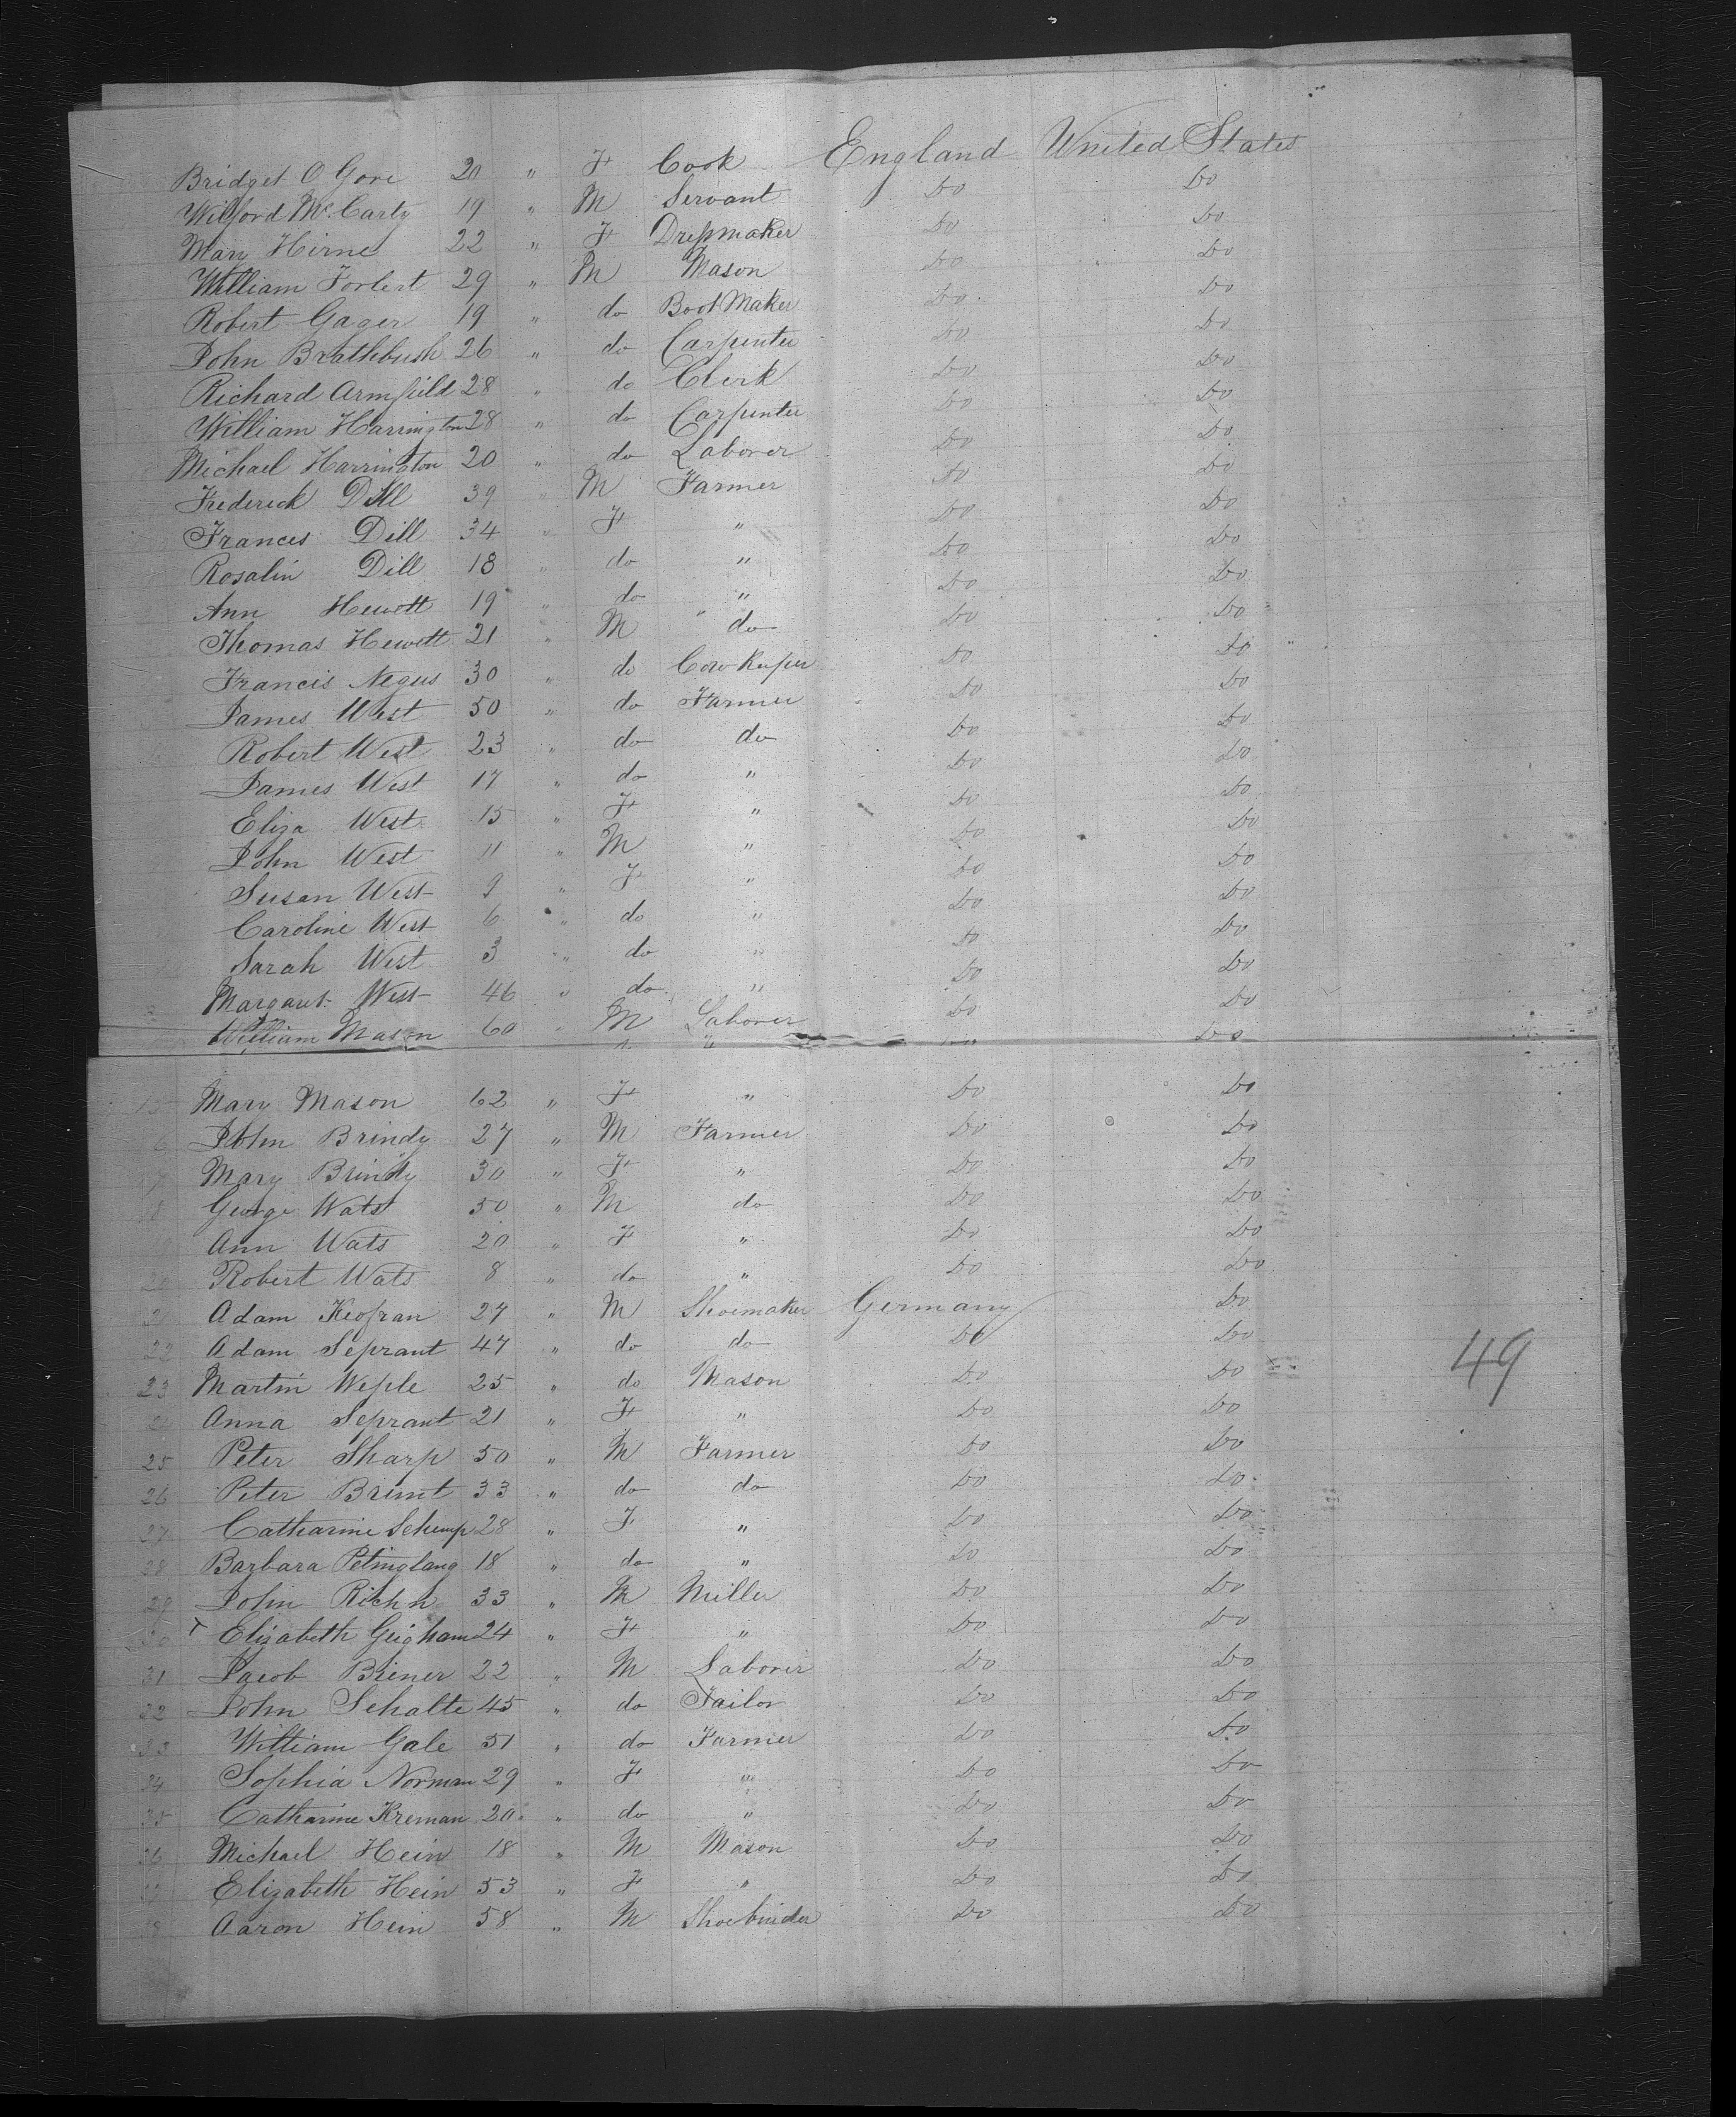 Bridget O Gore 20 " F Cook England United States
Wilford Mc Carty 19 " M Servant Do Do
Mary Hirne 22 " F Dressmaker Do Do
William Forbert 29 " M Mason Do Do
Robert Gager 19 " do Boot Maker Do Do
John Brathbush 26 " do Carpenter Do Do
Richard Armfield 28 " do Clerk Do Do
William Harrington 28 " do Carpenter Do Do
Michael Harrington 20 " do Laborer Do Do
Frederick Dill 39 " M Farmer Do Do
Frances Dill 34 " F " Do Do
Rosalin Dill 18 " do " Do Do
Ann Hewett 19 " do " Do Do
Thomas Hewett 21 " M " do Do Do
Francis Negus 30 " do Cow Keeper Do Do
James West 50 " do Farmer Do Do
Robert West 23 " do do Do Do
James West 17 " do " Do Do
Eliza West 15 " F " Do Do
John West 11 " M " Do Do
Susan West 9 " F " Do Do
Caroline West 6 " do " Do Do
Sarah West 3 " do " Do Do
Margaret West 46 " do " Do Do
William Mason 60 " M Laborer Do Do
15 Mary Mason 62 " F " Do Do
6 John Brindy 27 " M Farmer Do Do
7 Mary Brindy 30 " F " Do Do
18 George Wats 50 " M do Do Do
Ann Wats 20 " F " Do Do
20 Robert Wats 8 " do " Do Do
21 Adam Keofran 27 " M Shoemaker Germany Do
22 Adam Seprant 47 " do do Do Do
49
23 Martin Weple 25 " do Mason Do Do
2 Anna Seprant 21 " F " Do Do
25 Peter Sharp 50 " M Farmer Do Do
26 Peter Brimt 33 " do do Do Do
27 Catharine Schemp 28 " F " Do Do
28 Barbara Petinglang 18 " do " Do Do
29 John Richn 33 " M Miller Do Do
30 Elizabeth Geigham 24 " F " Do Do
31 Jacob Biener 22 " M Laborer Do Do
32 John Schalte 45 " do Tailor Do Do
33 William Gale 51 " do Farmer Do Do
34 Sophia Norman 29 " F " Do Do
35 Catharine Kreman 20 " do " Do Do
36 Michael Hein 18 " M Mason Do Do
37 Elizabeth Hein 53 " F " Do Do
38 Aaron Hein 58 " M Shoebinder Do Do